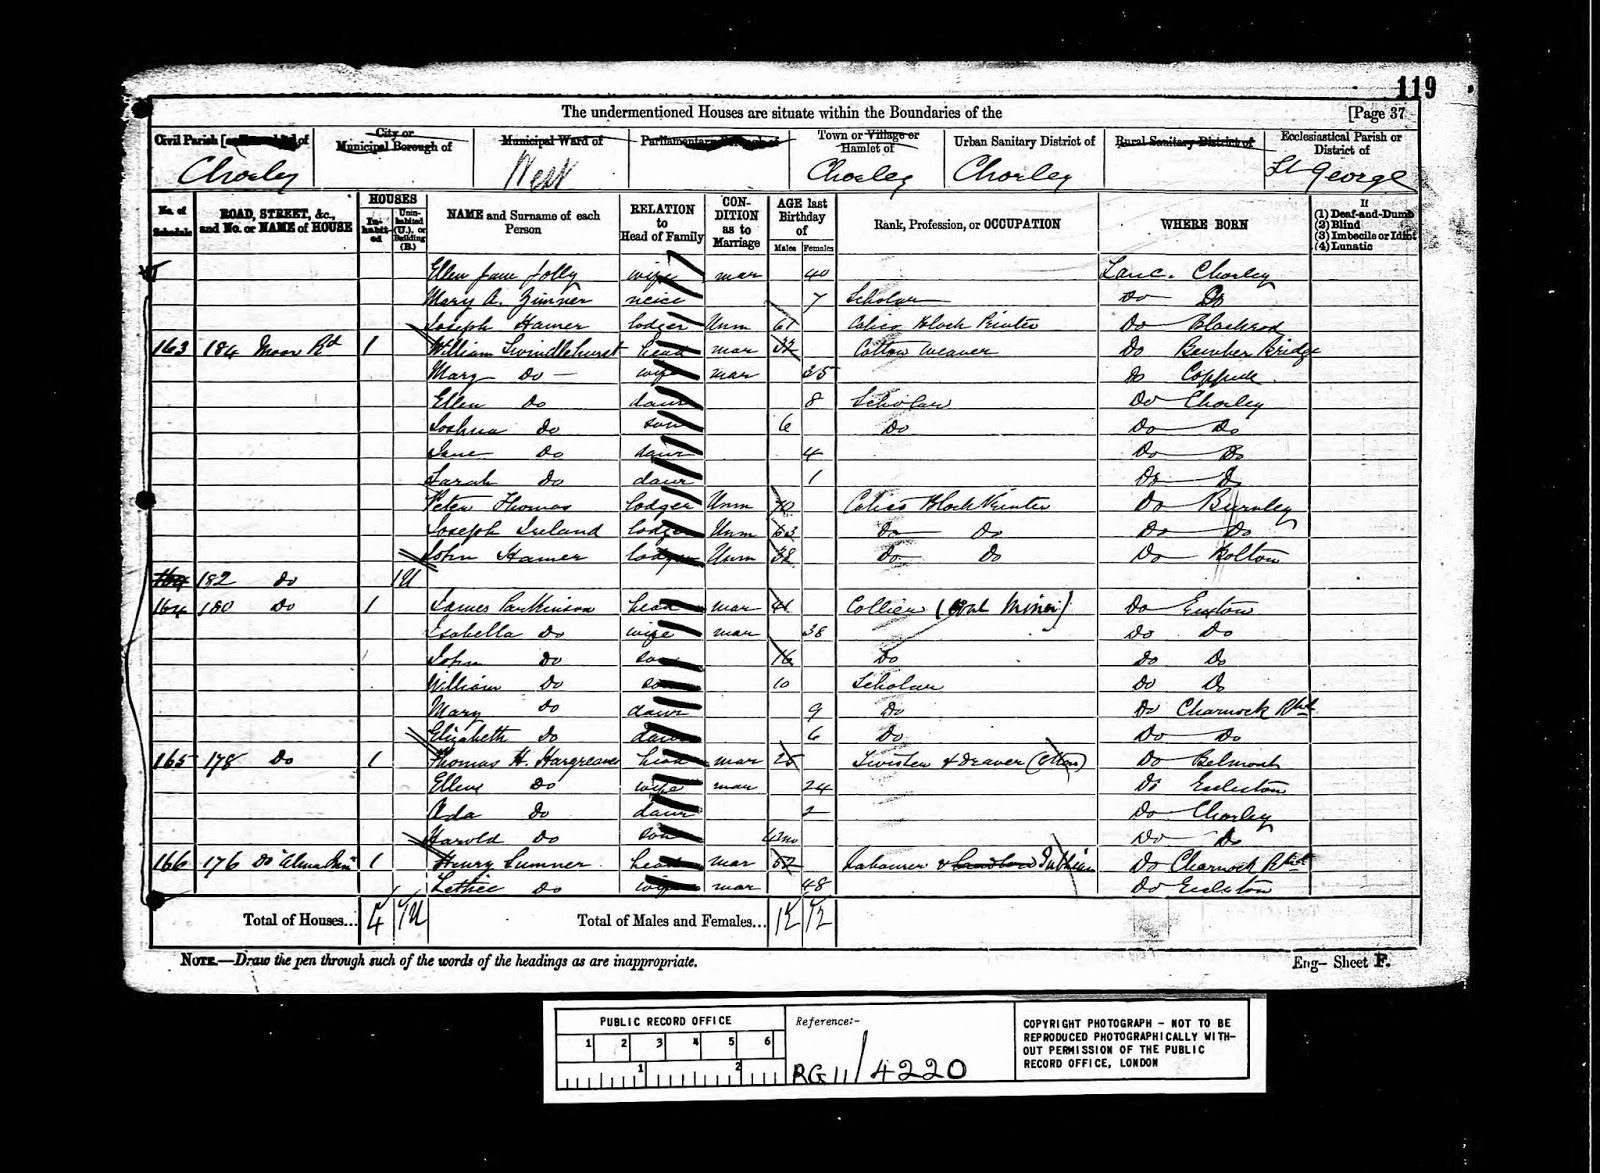 119
The undermentioned Houses are situate within the Boundaries of the [Page 37
Civil Parish [ of City or Municipal Borough of Municipal Ward of Parliamentary Borough of Town or Village or Hamlet of Urban Sanitary District of Rural Sanitary District of Ecclesiastical Parish or District of
Chorley West Chorley Chorley St George
No. of Schedule ROAD, STREET, &c., and No. or NAME of HOUSE HOUSES In-habit-ed Unin-habited (U.), or Building (B.) NAME and Surname of each Person RELATION to Head of Family CON-DITION as to Marriage AGE last Birthday of Males Females Rank, Profession, or OCCUPATION WHERE BORN If (1) Deaf-and-Dumb (2) Blind (3) Imbecile or Idiot (4) Lunatic
Ellen Jane Jolly wife mar 40 Lanc. Chorley
Mary A. neice 7 Scholar Do Do
Joseph Hamer lodger Unm 61 Calico Block Printer Do Blackrod
163 184 Moor Rd 1 William Swindlehurst head mar Cotton Weaver Do Bamber Bridge
Mary Do wife mar 35 Do Coppull
Ellen Do daur 8 Scholar Do Chorley
Joshua Do son 6 Do Do Do
Jane Do daur 4 Do Do
Sarah Do daur 1 Do Do
Peter Thomas lodger Unm 70 Calico Block Printer Do Burnley
Joseph Ireland lodger Unm 63 Do Do Do Do
John Hamer lodger Unm 38 Do Do Do Bolton
164 182 Do 1U
164 180 Do 1 James Parkinson head mar 41 Collier (Coal Miner) Do Euxton
Isabella Do wife mar 38 Do Do
John Do son 16 Do Do Do
William Do son 10 Scholar Do Do
Mary Do daur 9 Do Do Charnock Rhd
Elizabeth Do daur 6 Do Do Do
165 178 Do 1 Thomas H. Hargreaves head mar 25 Twister & Drawer (Cotton) Do Belmont
Ellen Do wife mar 24 Do Eccleston
Ada Do daur 2 Do Chorley
Harold Do son Do Do
166 176 Do "Alma Inn" 1 Henry Sumner head mar 52 & Landlord Do Charnock Rhd
Lettice Do wife mar 48 Do Eccleston
Total of Houses... 4 1U Total of Males and Females... 12 12
NOTE.—Draw the pen through such of the words of the headings as are inappropriate. Eng– Sheet F.
PUBLIC RECORD OFFICE
1 2 3 4 5 6
1 2
Reference:-
RG 11/4220
COPYRIGHT PHOTOGRAPH – NOT TO BE
REPRODUCED PHOTOGRAPHICALLY WITH-
OUT PERMISSION OF THE PUBLIC
RECORD OFFICE, LONDON